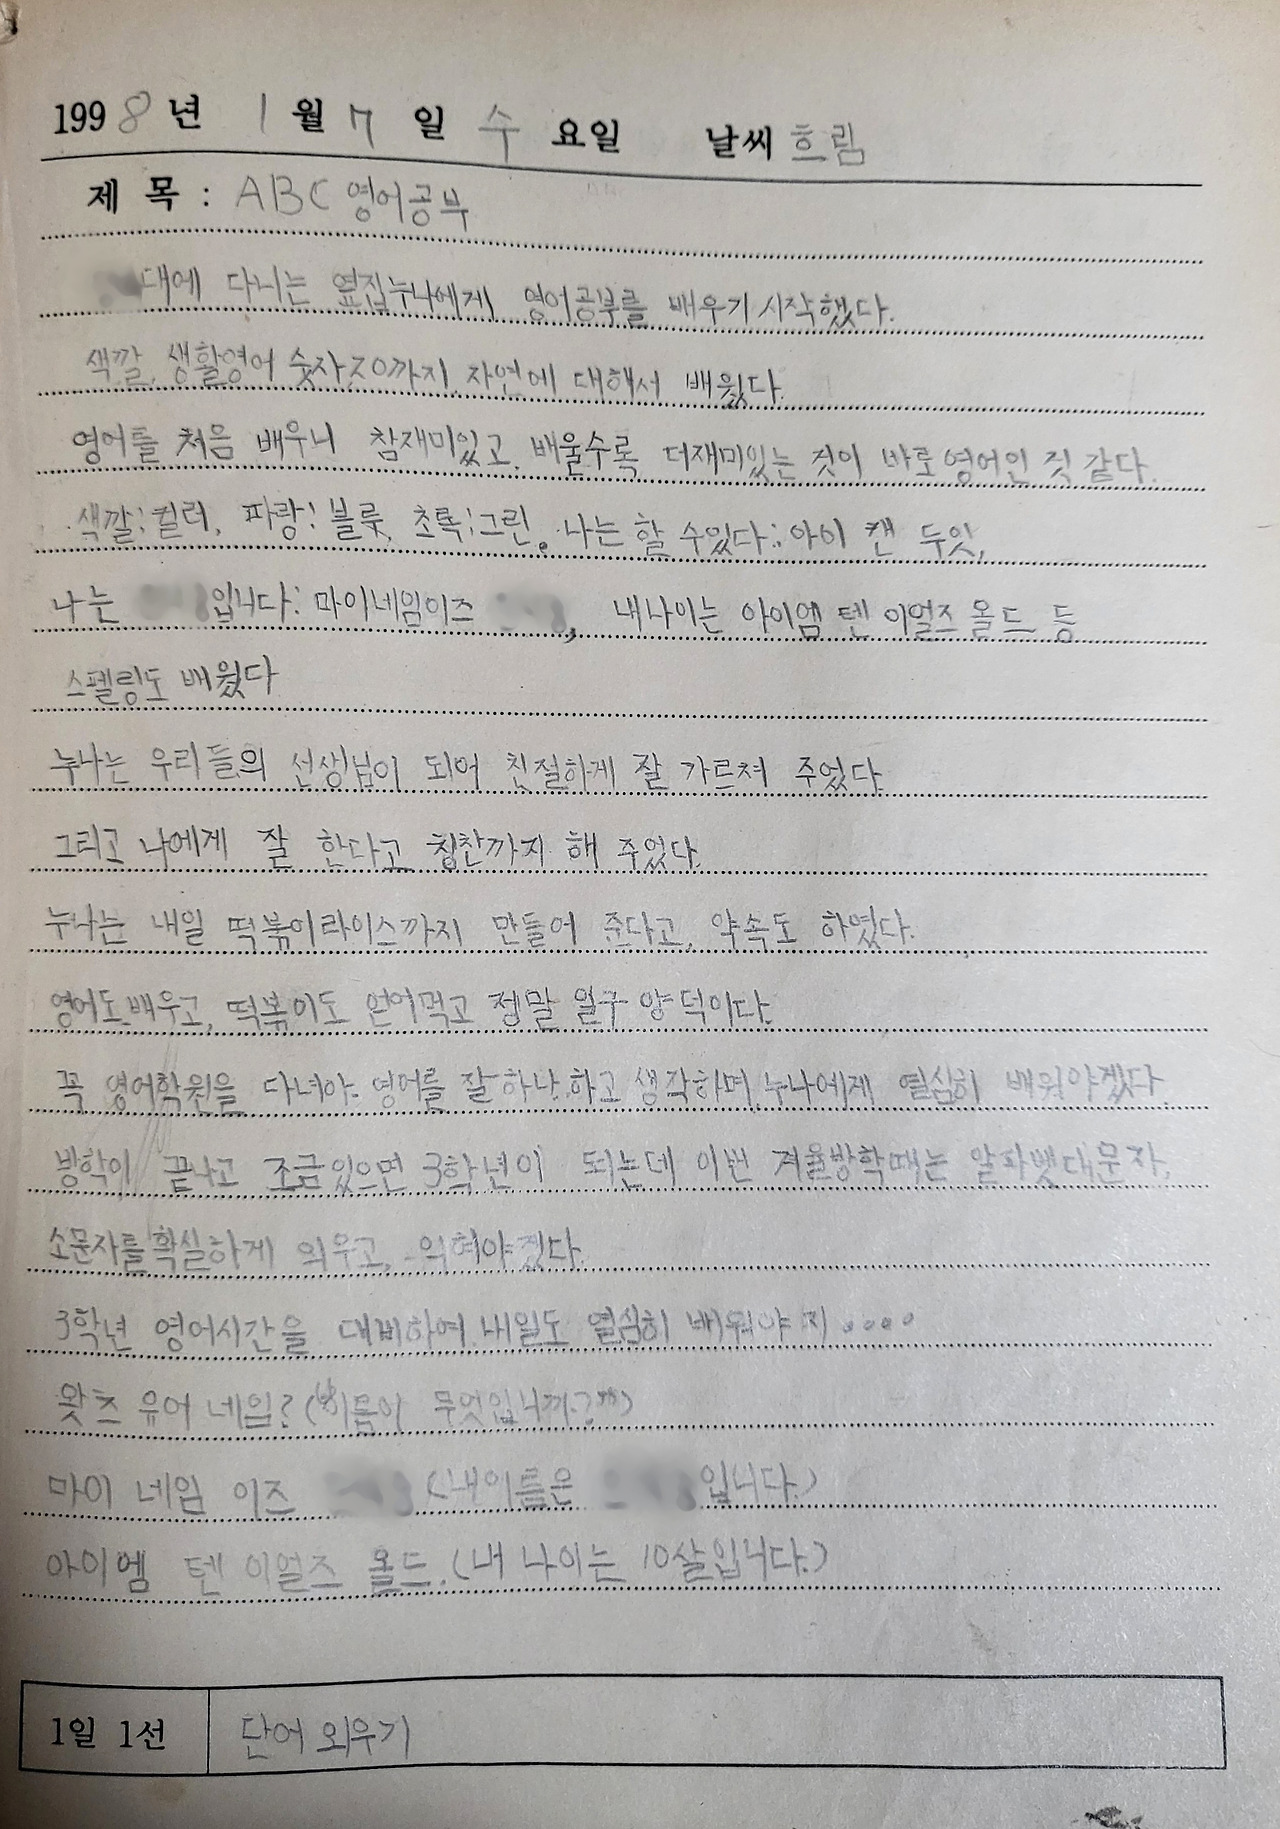 1998년 1월 7일 수요일 날씨 흐림
제 목 : ABC 영어공부
대에 다니는 옆집누나에게 영어공부를 배우기 시작했다.
색깔, 생활영어 숫자 20까지, 자연에 대해서 배웠다.
영어를 처음 배우니 참재미있고, 배울수록 더재미있는 것이 바로 영어인 것 같다.
색깔:컬러, 파랑:블룻, 초록:그린. 나는 할 수있다: 아이 캔 두잇,
나는 입니다: 마이네임이즈 , 내나이는 아이엠 텐 이얼즈 올드 등
스펠링도 배웠다
누나는 우리들의 선생님이 되어 친절하게 잘 가르쳐 주었다
그리고 나에게 잘 한다고 칭찬까지 해 주었다.
누나는 내일 떡볶이라이스까지 만들어 준다고, 약속도 하였다.
영어도 배우고, 떡볶이도 얻어먹고 정말 일구 양덕이다.
꼭 영어학원을 다녀야 영어를 잘하나, 하고 생각하며 누나에게 열심히 배워야겠다.
방학이 끝나고 조금있으면 3학년이 되는데 이번 겨울방학때는 알파벳대문자,
소문자를 확실하게 외우고, 익혀야겠다.
3학년 영어시간을 대비하여 내일도 열심히 배워야지....
왓츠 유어 네임? ("이름이 무엇입니까?")
마이 네임 이즈 (내이름은 입니다.)
아이엠 텐 이얼즈 올드. (내 나이는 10살입니다.)
1일 1선 단어 외우기